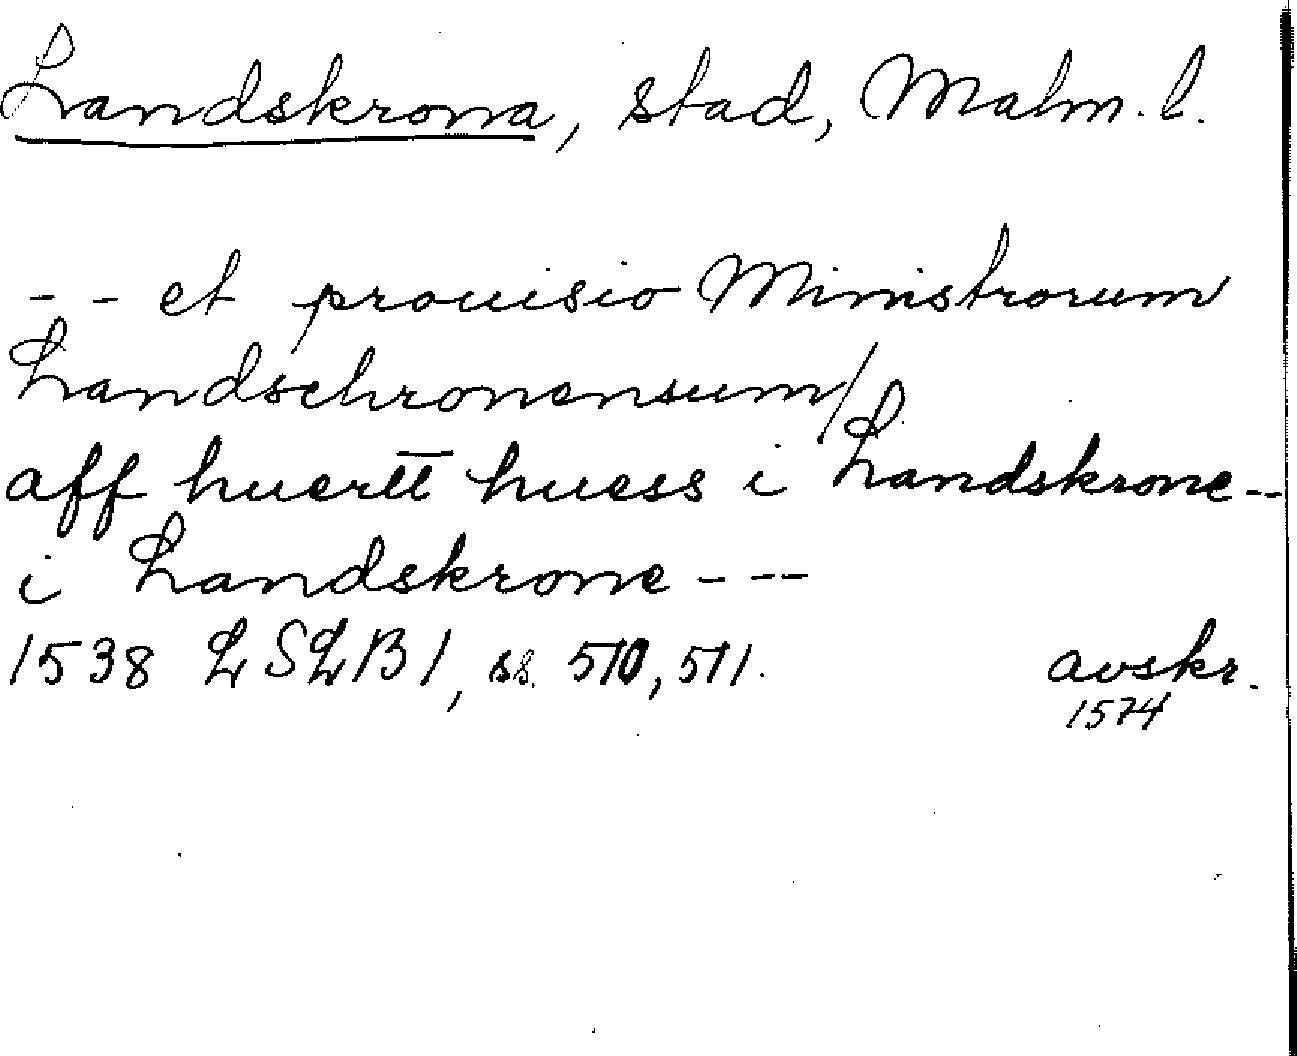 Landskrona, stad, Malm. l.
-- et prouisio Ministrorum
Landschronensium/
aff huertt huess i Landskrone--
i Landskrone ---
1538 LSLB 1, ss. 510, 511. avskr.
1574